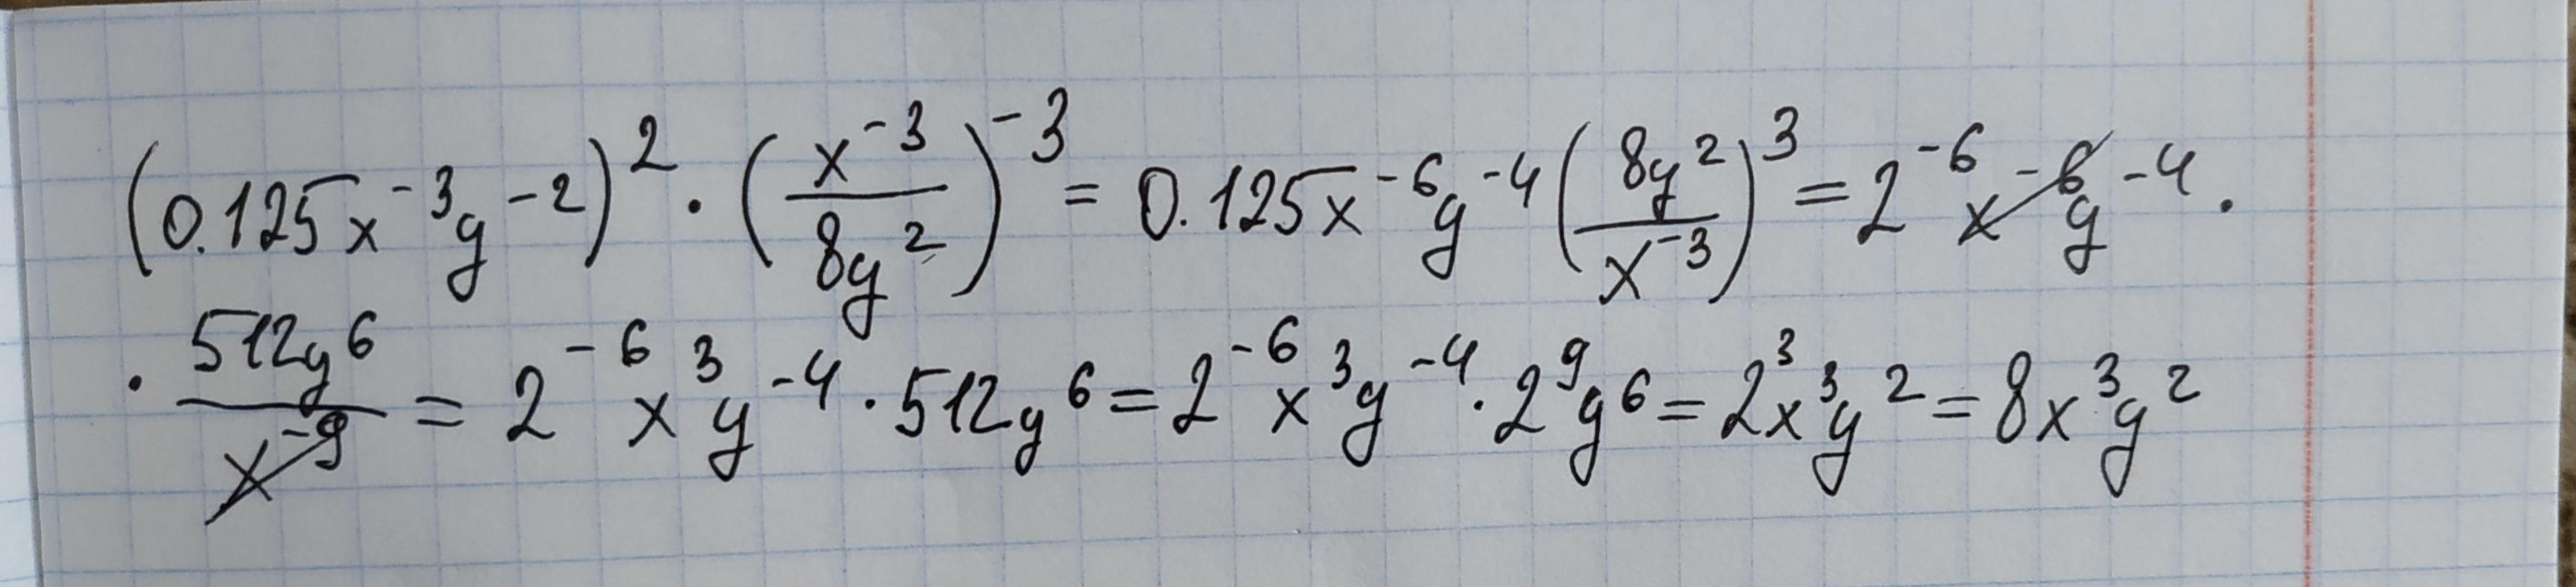 (0.125x⁻³y⁻²)² · (x⁻³/8y²)⁻³ = 0.125x⁻⁶y⁻⁴(8y²/x⁻³)³ = 2⁻⁶x⁻⁶y⁻⁴ ·
· 512y⁶/x⁻⁹ = 2⁻⁶x³y⁻⁴ · 512y⁶ = 2⁻⁶x³y⁻⁴ · 2⁹y⁶ = 2³x³y² = 8x³y²